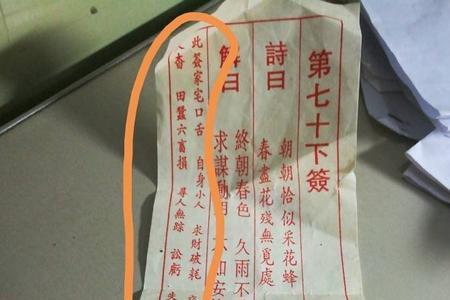 第七十下簽
詩曰
朝朝恰似采花蜂
春盡花殘無覓處
解曰
終朝春色 久雨不
求謀動用 不如安
此簽家宅口舌 自身小人 求財破耗
田蠶六畜損 尋人無踪 訟虧 失